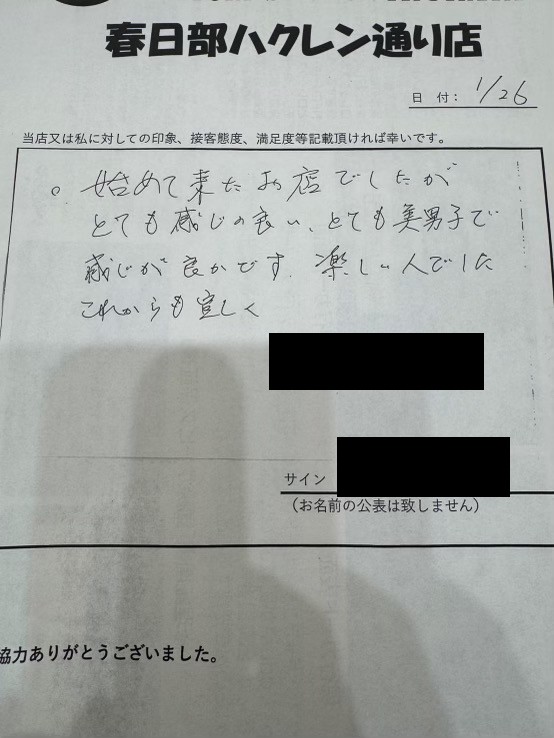 春日部ハクレン通り店
日 付： 1/26
当店又は私に対しての印象、接客態度、満足度等記載頂ければ幸いです。
。始めて来たお店でしたが
とても感じの良い、とても美男子で
感じが良かです. 楽しい人でした
これからも宜しく
サイン
（お名前の公表は致しません）
協力ありがとうございました。